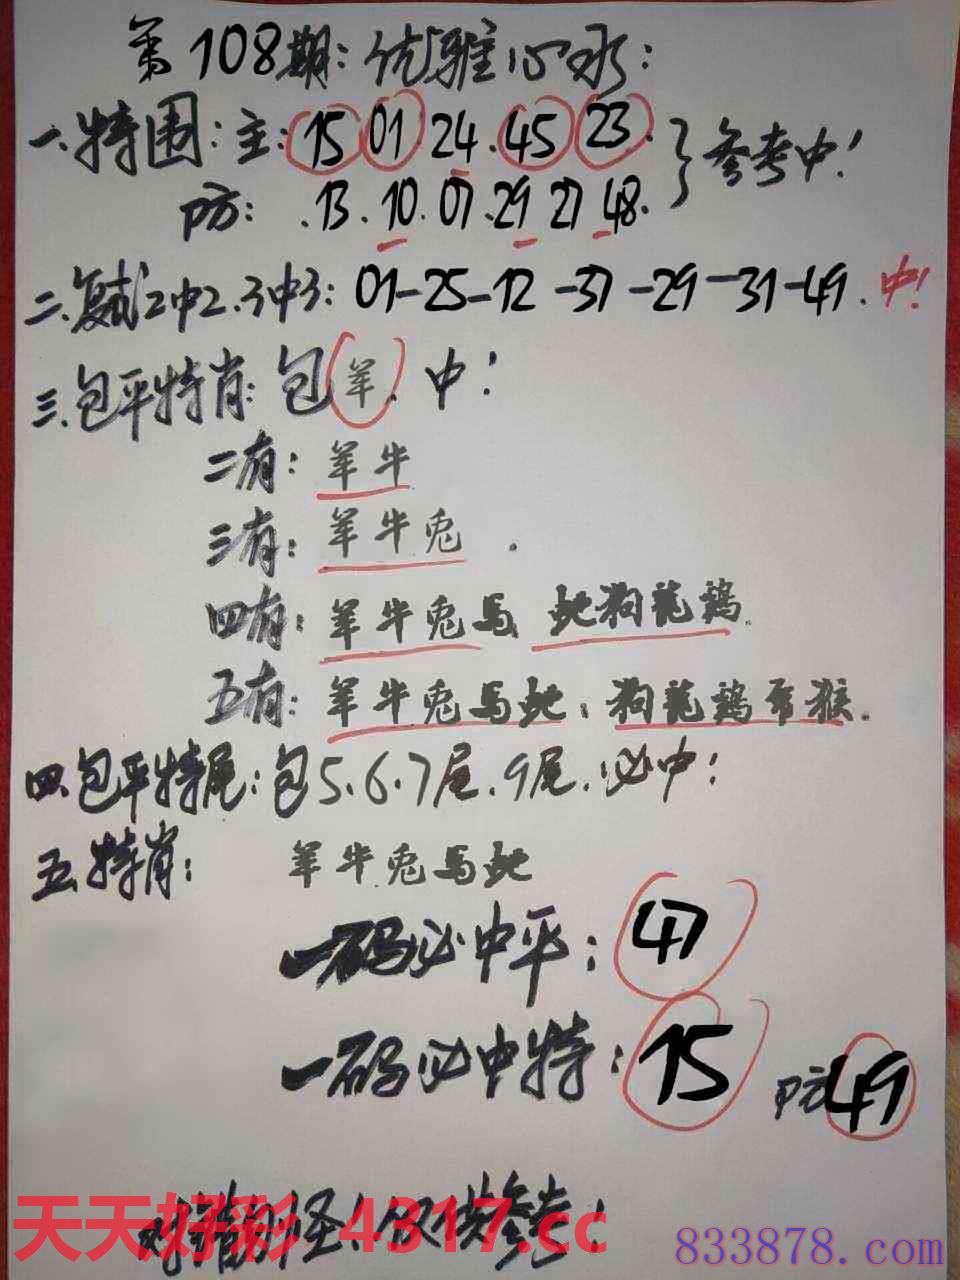 第108期:优雅心水:
一.特围:主:15 01 24.45 23. 参考中!
防:.13.10.07.29 27 48.
二.复试2中2.3中3:01-25-12-37-29-31-49.中!
三.包平特肖:包羊.中!
二有:羊牛
三有:羊牛兔.
四有:羊牛兔马 蛇狗龙鸡.
五有:羊牛兔马蛇:狗龙鸡鼠猴.
四.包平特尾:包5.6.7尾.9尾.必中!
五.特肖: 羊牛兔马蛇
一码必中平:47
一码必中特:15 防49
对错勿怪!仅供参考!
天天好彩 4317.cc
833878.com